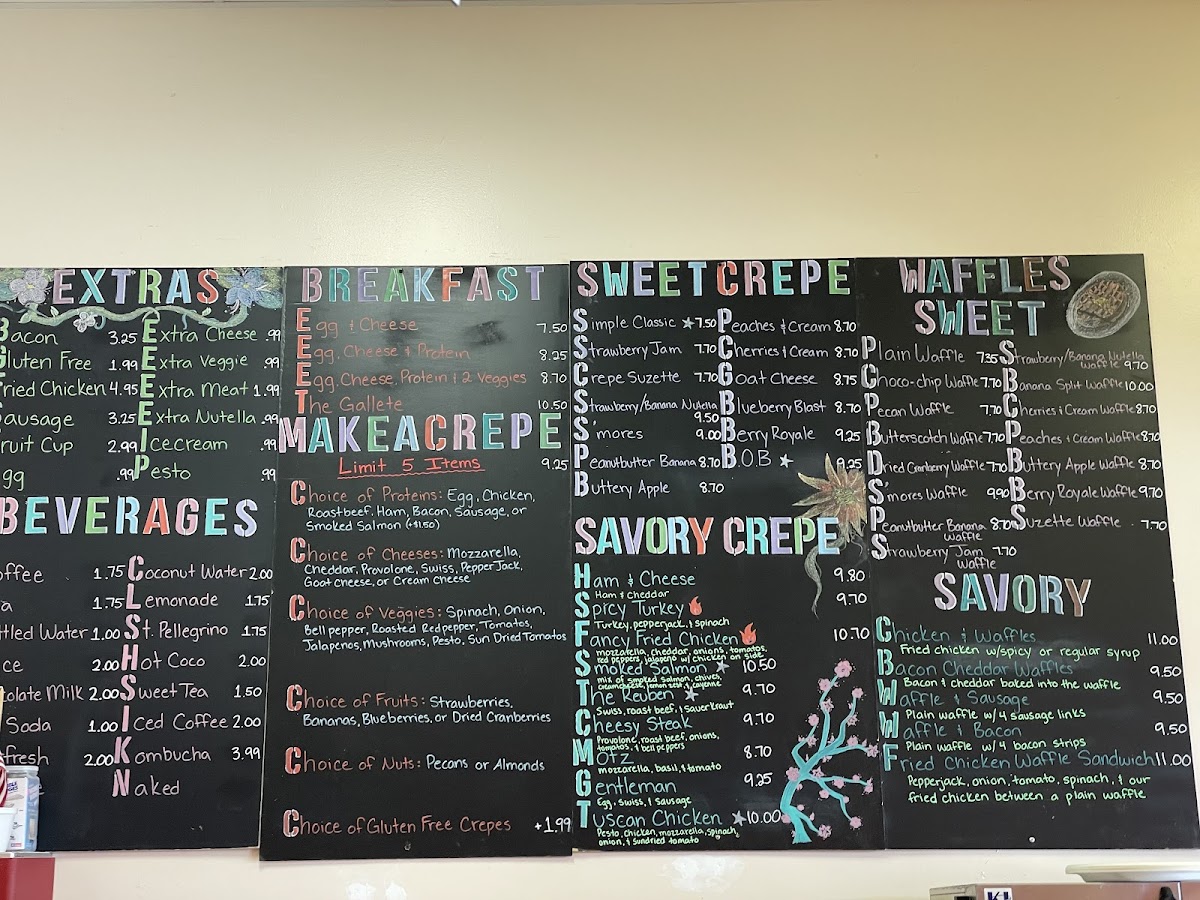 EXTRAS
Bacon 3.25
Gluten Free 1.99
Fried Chicken 4.95
Sausage 3.25
Fruit Cup 2.99
Egg .99
Extra Cheese .99
Extra Veggie .99
Extra Meat 1.99
Extra Nutella .99
Icecream .99
Pesto .99
BEVERAGES
offee 1.75
a 1.75
ttled Water 1.00
ce 2.00
olate Milk 2.00
Soda 1.00
fresh 2.00
Coconut Water 2.00
Lemonade 1.75
St. Pellegrino 1.75
Hot Coco 2.00
Sweet Tea 1.50
Iced Coffee 2.00
Kombucha 3.99
Naked
BREAKFAST
Egg & Cheese 7.50
Egg, Cheese & Protein 8.25
Egg, Cheese, Protein & 2 Veggies 8.70
The Gallete 10.50
MAKEACREPE
Limit 5 Items 9.25
Choice of Proteins: Egg, Chicken,
Roastbeef, Ham, Bacon, Sausage, or
Smoked Salmon (+$1.50)
Choice of Cheeses: Mozzarella,
Cheddar, Provolone, Swiss, Pepper Jack,
Goat cheese, or Cream cheese
Choice of Veggies: Spinach, Onion,
Bell pepper, Roasted Red pepper, Tomatos,
Jalapenos, Mushrooms, Pesto, Sun Dried Tomatos
Choice of Fruits: Strawberries,
Bananas, Blueberries, or Dried Cranberries
Choice of Nuts: Pecans or Almonds
Choice of Gluten Free Crepes +1.99
SWEETCREPE
Simple Classic 7.50
Strawberry Jam 7.70
Crepe Suzette 7.70
Strawberry/Banana Nutella
9.50
S'mores 9.00
Peanutbutter Banana 8.70
Buttery Apple 8.70
Peaches & Cream 8.70
Cherries & Cream 8.70
Goat Cheese 8.75
Blueberry Blast 8.70
Berry Royale 9.25
B.O.B 9.25
SAVORY CREPE
Ham & Cheese 9.80
Ham & cheddar
Spicy Turkey 9.70
Turkey, pepperjack, & spinach
Fancy Fried Chicken 10.70
mozzarella, cheddar, onions, tomatos,
red peppers, jalapeño w/ chicken on side
Smoked Salmon 10.50
mix of smoked salmon, chives,
creamcheese, lemon zest, & cayenne
The Reuben 9.70
Swiss, roast beef, & sauerkraut
Cheesy Steak 9.70
Provolone, roast beef, onions,
tomatos, & bell peppers
Motz 8.70
mozzarella, basil, & tomato
Gentleman 9.25
Egg, swiss, & sausage
Tuscan Chicken 10.00
Pesto, chicken, mozzarella, spinach,
onion, & sundried tomato
WAFFLES
SWEET
Plain Waffle 7.35
Choco-chip Waffle 7.70
Pecan Waffle 7.70
Butterscotch Waffle 7.70
Dried Cranberry Waffle 7.70
S'mores Waffle 9.90
Peanutbutter Banana 8.70
Waffle
Strawberry Jam 7.70
Waffle
Strawberry/Banana Nutella
Waffle 9.70
Banana Split Waffle 10.00
Cherries & Cream Waffle 8.70
Peaches & Cream Waffle 8.70
Buttery Apple Waffle 8.70
Berry Royale Waffle 9.70
Suzette Waffle 7.70
SAVORY
Chicken & Waffles 11.00
Fried chicken w/spicy or regular syrup
Bacon Cheddar Waffles 9.50
Bacon & cheddar baked into the waffle
Waffle & Sausage 9.50
Plain waffle w/ 4 sausage links
Waffle & Bacon 9.50
Plain waffle w/ 4 bacon strips
Fried Chicken Waffle Sandwich 11.00
Pepperjack, onion, tomato, spinach, & our
fried chicken between a plain waffle